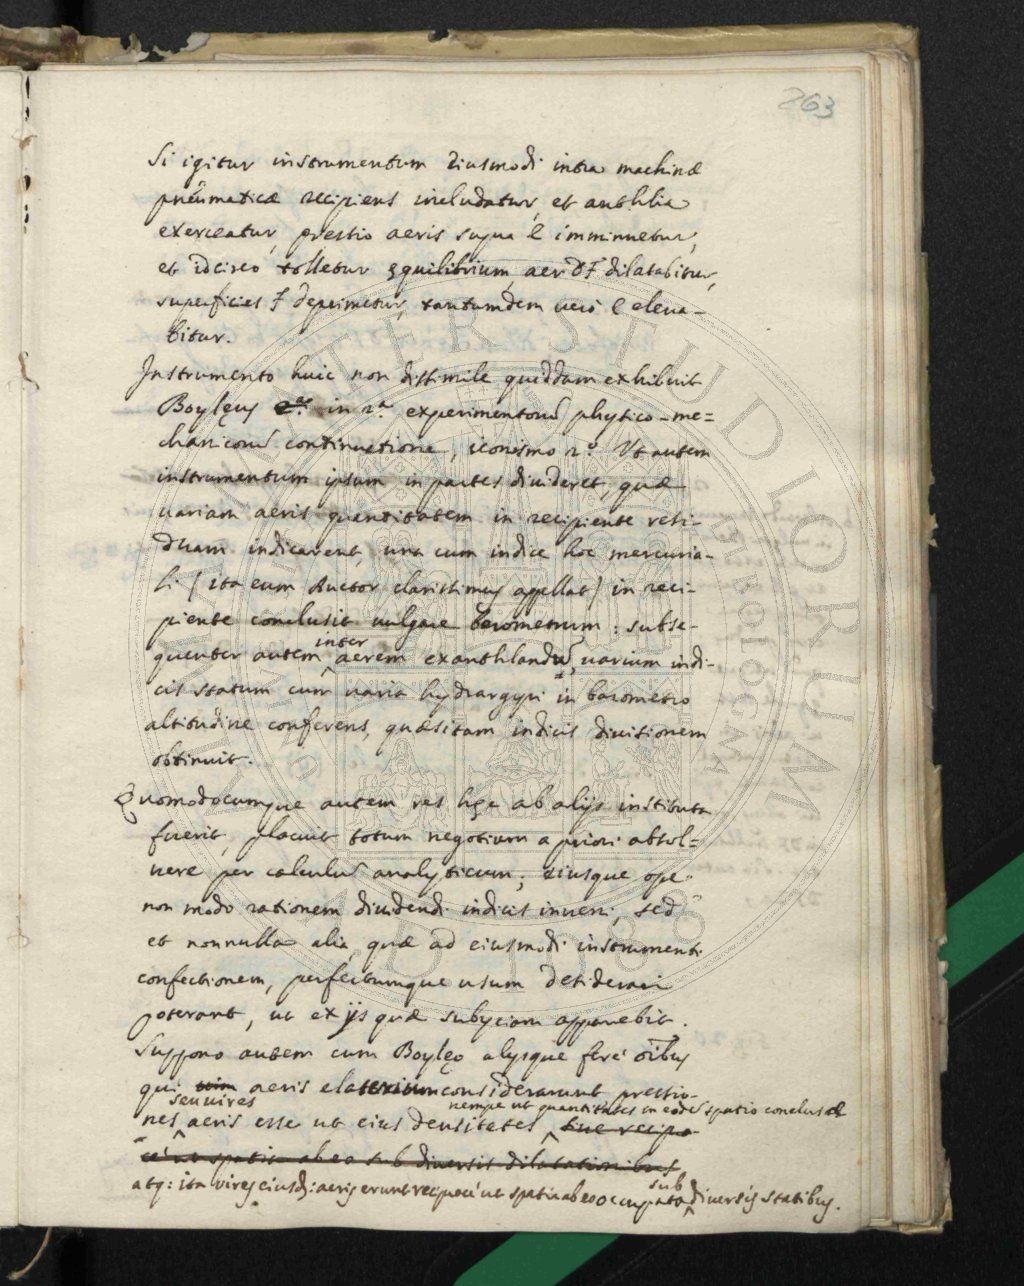 263
Si igitur instrumentum eiusmodi intra machinæ
pneumaticæ recipiens includatur, et anthlia
exerceatur, pressio aeris supra E imminuetur,
et idcirco tolletur ęquilibrium, aer DF dilatabitur,
superficies F deprimetur, tantumdem vero E eleva-
bitur.
Instrumento huic non dissimile quiddam exhibuit
Boylęus in 2.ª experimentorũ physico-me=
chanicorũ continuatione, iconismo 2.º Ut autem
instrumentum ipsum in partes divideret, quæ
variam aeris quantitatem in recipiente resi-
duam indicarent, una cum indice hoc mercuria-
li (ita eum Auctor clarissimus appellat) in reci-
piente conclusit vulgare barometrum: subse-
quenter autem inter aerem exanthlandũ, varium indi-
cis statum cum varia hydrargyri in barometro
altitudine conferens, quæsitam indicis divisionem
obtinuit.
Quomodocumque autem res hęc ab alijs instituta
fuerit, placuit totum negotium a priori absol=
vere per calculũ analyticum; eiusque ope
non modo rationem dividendi indicis inveni, sed
et nonnulla alia, quæ ad eiusmodi instrumenti
confectionem, perfectumque usum desiderari
poterant, ut ex ijs quæ subijciam apparebit.
Suppono autem cum Boylęo alijsque ferè oĩbus
qui vim aeris elaterium considerarunt pressio-
nes seu vires aeris esse ut eius densitates, nempe ut quantitates in eodẽ spatio conclusæ sive recipro
cè ut spatia ab eo sub diversis dilatationibus
atq: ita vires eiusd: aeris erunt reciprocè ut spatia ab eo occupata sub diversis statibus.